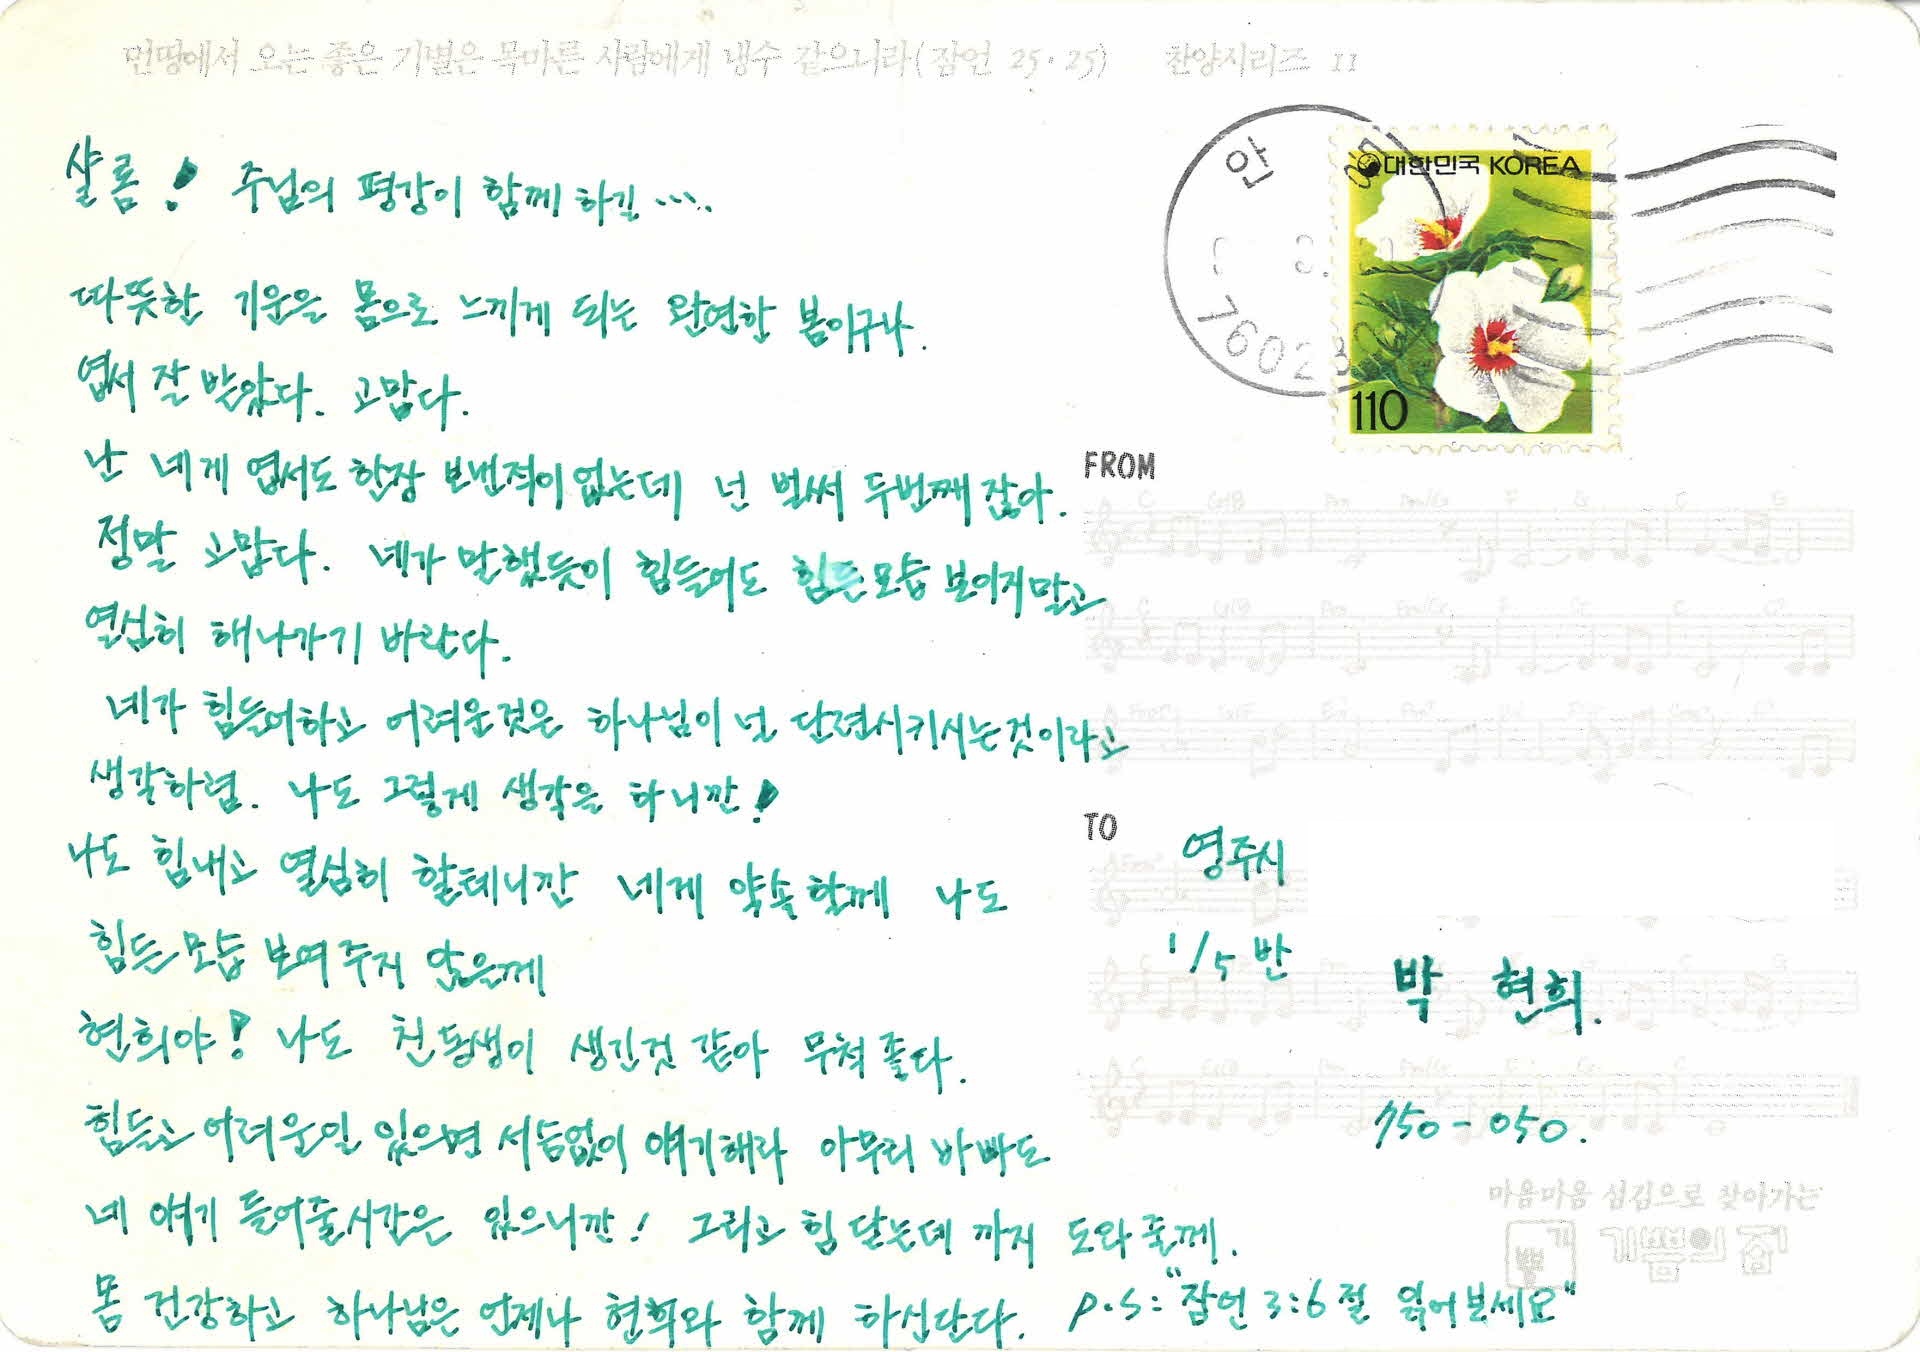 먼땅에서 오는 좋은 기별은 목마른 사람에게 냉수 같으니라(잠언 25·25) 찬양시리즈 11
샬롬! 주님의 평강이 함께 하길....
따뜻한 기운을 몸으로 느끼게 되는 완연한 봄이구나.
엽서 잘 받았다. 고맙다.
난 네게 엽서도 한장 보낸적이 없는데 넌 벌써 두번째 잖아.
정말 고맙다. 네가 말했듯이 힘들어도 힘든모습 보이지말고
열심히 해나가기 바란다.
네가 힘들어하고 어려운것은 하나님이 널 단련시키시는것이라고
생각하렴. 나도 그렇게 생각을 하니깐!
나도 힘내고 열심히 할테니깐 네게 약속할께 나도
힘든모습 보여주지 않을께
현희야! 나도 친동생이 생긴것 같아 무척 좋다.
힘들고 어려운일 있으면 서슴없이 얘기해라 아무리 바빠도
네 얘기 들어줄시간은 있으니깐! 그리고 힘 닿는데 까지 도와줄께.
몸 건강하고 하나님은 언제나 현희와 함께 하신단다.
P.S: "잠언 3:6절 읽어보세요"
안
76023
대한민국 KOREA
110
FROM
TO
영주시
1/5반
박 현희.
750-050.
마음마음 섬김으로 찾아가는
기쁨
기쁨의 집